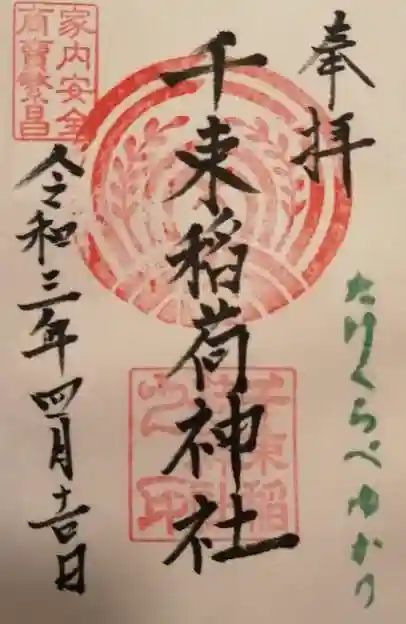 奉拝
たけくらべゆかり
千束稲荷神社
千束稲
荷神社
之印
家内安全
商賣繁昌
令和三年四月吉日